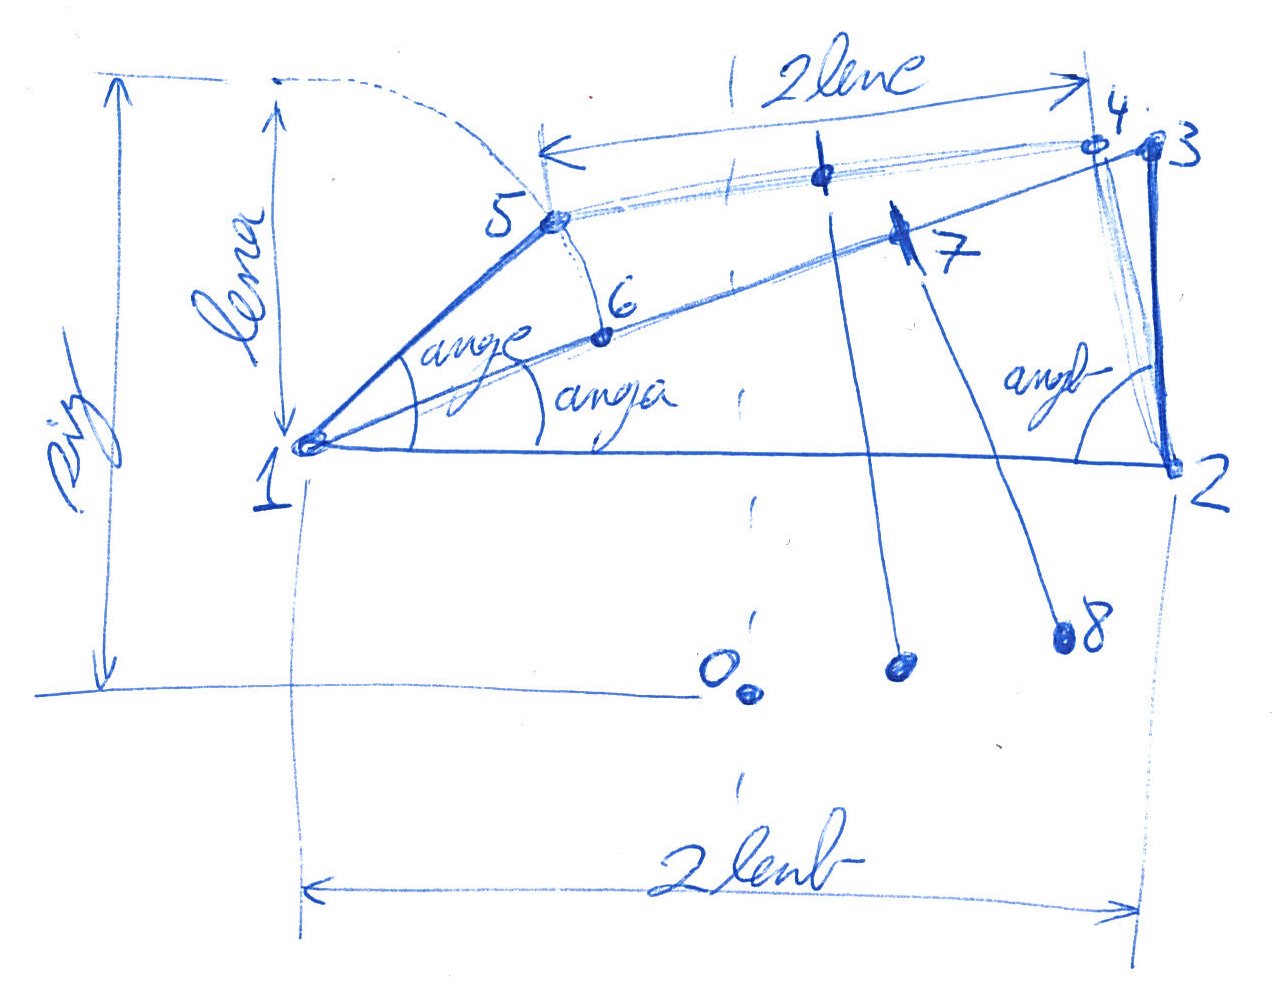 2lenc
4
3
5
7
lena
6
angc
anga
angb
1
2
8
0
2lenb